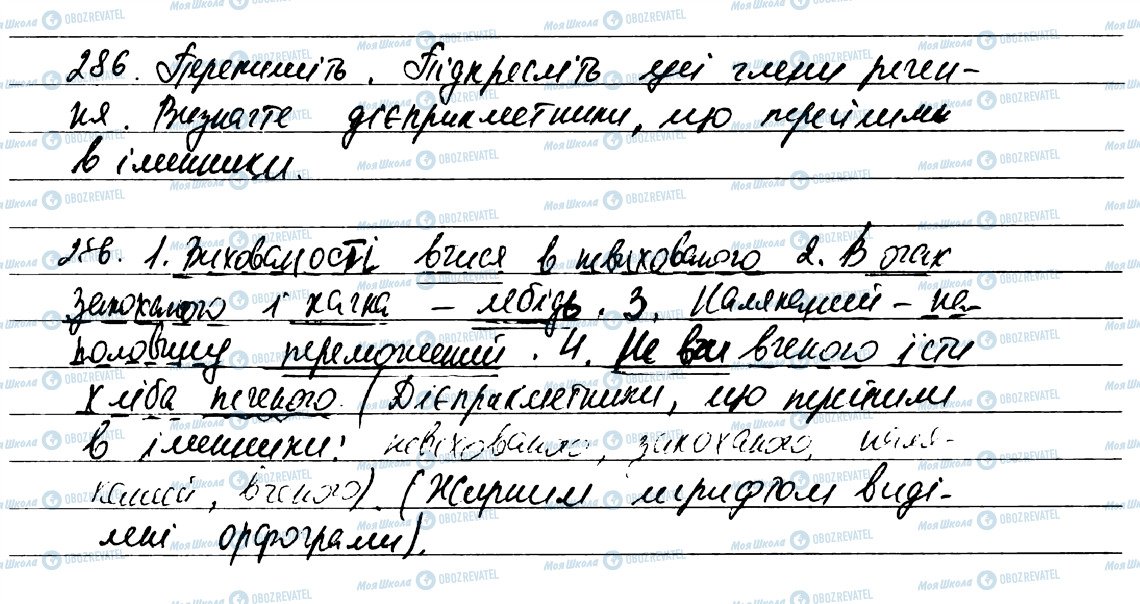 286. Перепишіть. Підкресліть цей члени речен-
ня. Визначте дієприкметники, що перейшли
в іменники.
286. 1. Вихованості вчися в невихованого 2. В очах
закоханого і качка – лебідь. 3. Наляканий – на-
половину переможений. 4. Не вчи вченого їсти
хліба печеного. (Дієприкметники, що перейшли
в іменники: невихованого, закоханого, наля-
каний, вченого). (Жирним шрифтом виді-
лені орфограми).